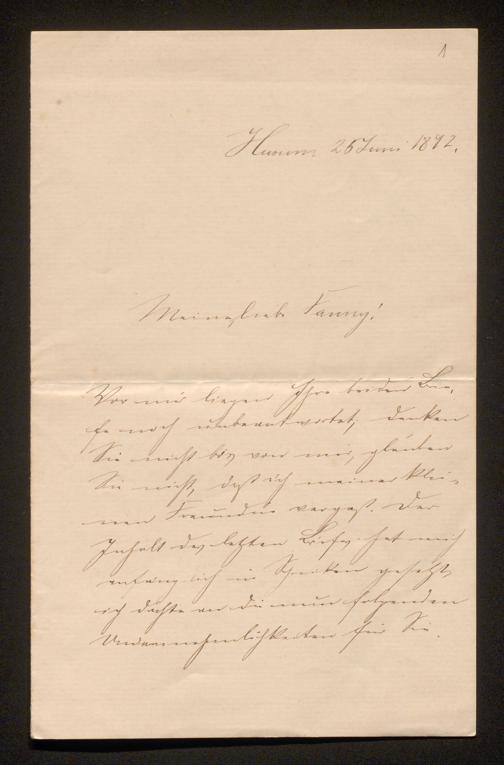 1
25 Juni 1892.
Meine liebe Fanny!
Vor mir liegen Ihre beiden Brie-
fe noch unbeantwortet, denken
Sie nicht bös von mir, glauben
Sie nicht, daß ich meiner klei-
nen Freundin vergaß. Der
Inhalt des letzten Briefes hat mich
anfänglich in Schrecken gesetzt,
ich dachte an die nun folgenden
Unannehmlichkeiten für Sie.